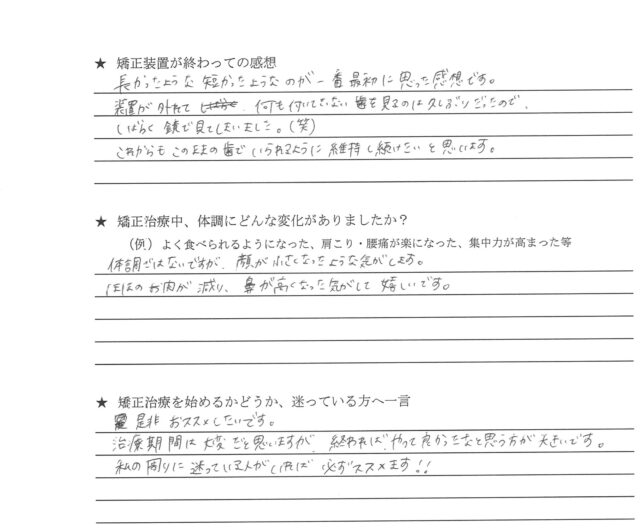 ★ 矯正装置が終わっての感想
長かったような短かったようなのが一番最初に思った感想です。
装置が外れて 何も付いていない歯を見るのは久しぶりだったので、
しばらく鏡で見てしまいました。(笑)
これからもこのままの歯でいられるように維持し続けたいと思います。
★ 矯正治療中、体調にどんな変化がありましたか？
（例）よく食べられるようになった、肩こり・腰痛が楽になった、集中力が高まった等
体調ではないですが、顔が小さくなったような気がします。
ほほのお肉が減り、鼻が高くなった気がして嬉しいです。
★ 矯正治療を始めるかどうか、迷っている方へ一言
是非おススメしたいです。
治療期間は大変だと思いますが、終われば、やって良かったなと思う方が大きいです。
私の周りに迷っている人がいれば必ずススメます!!